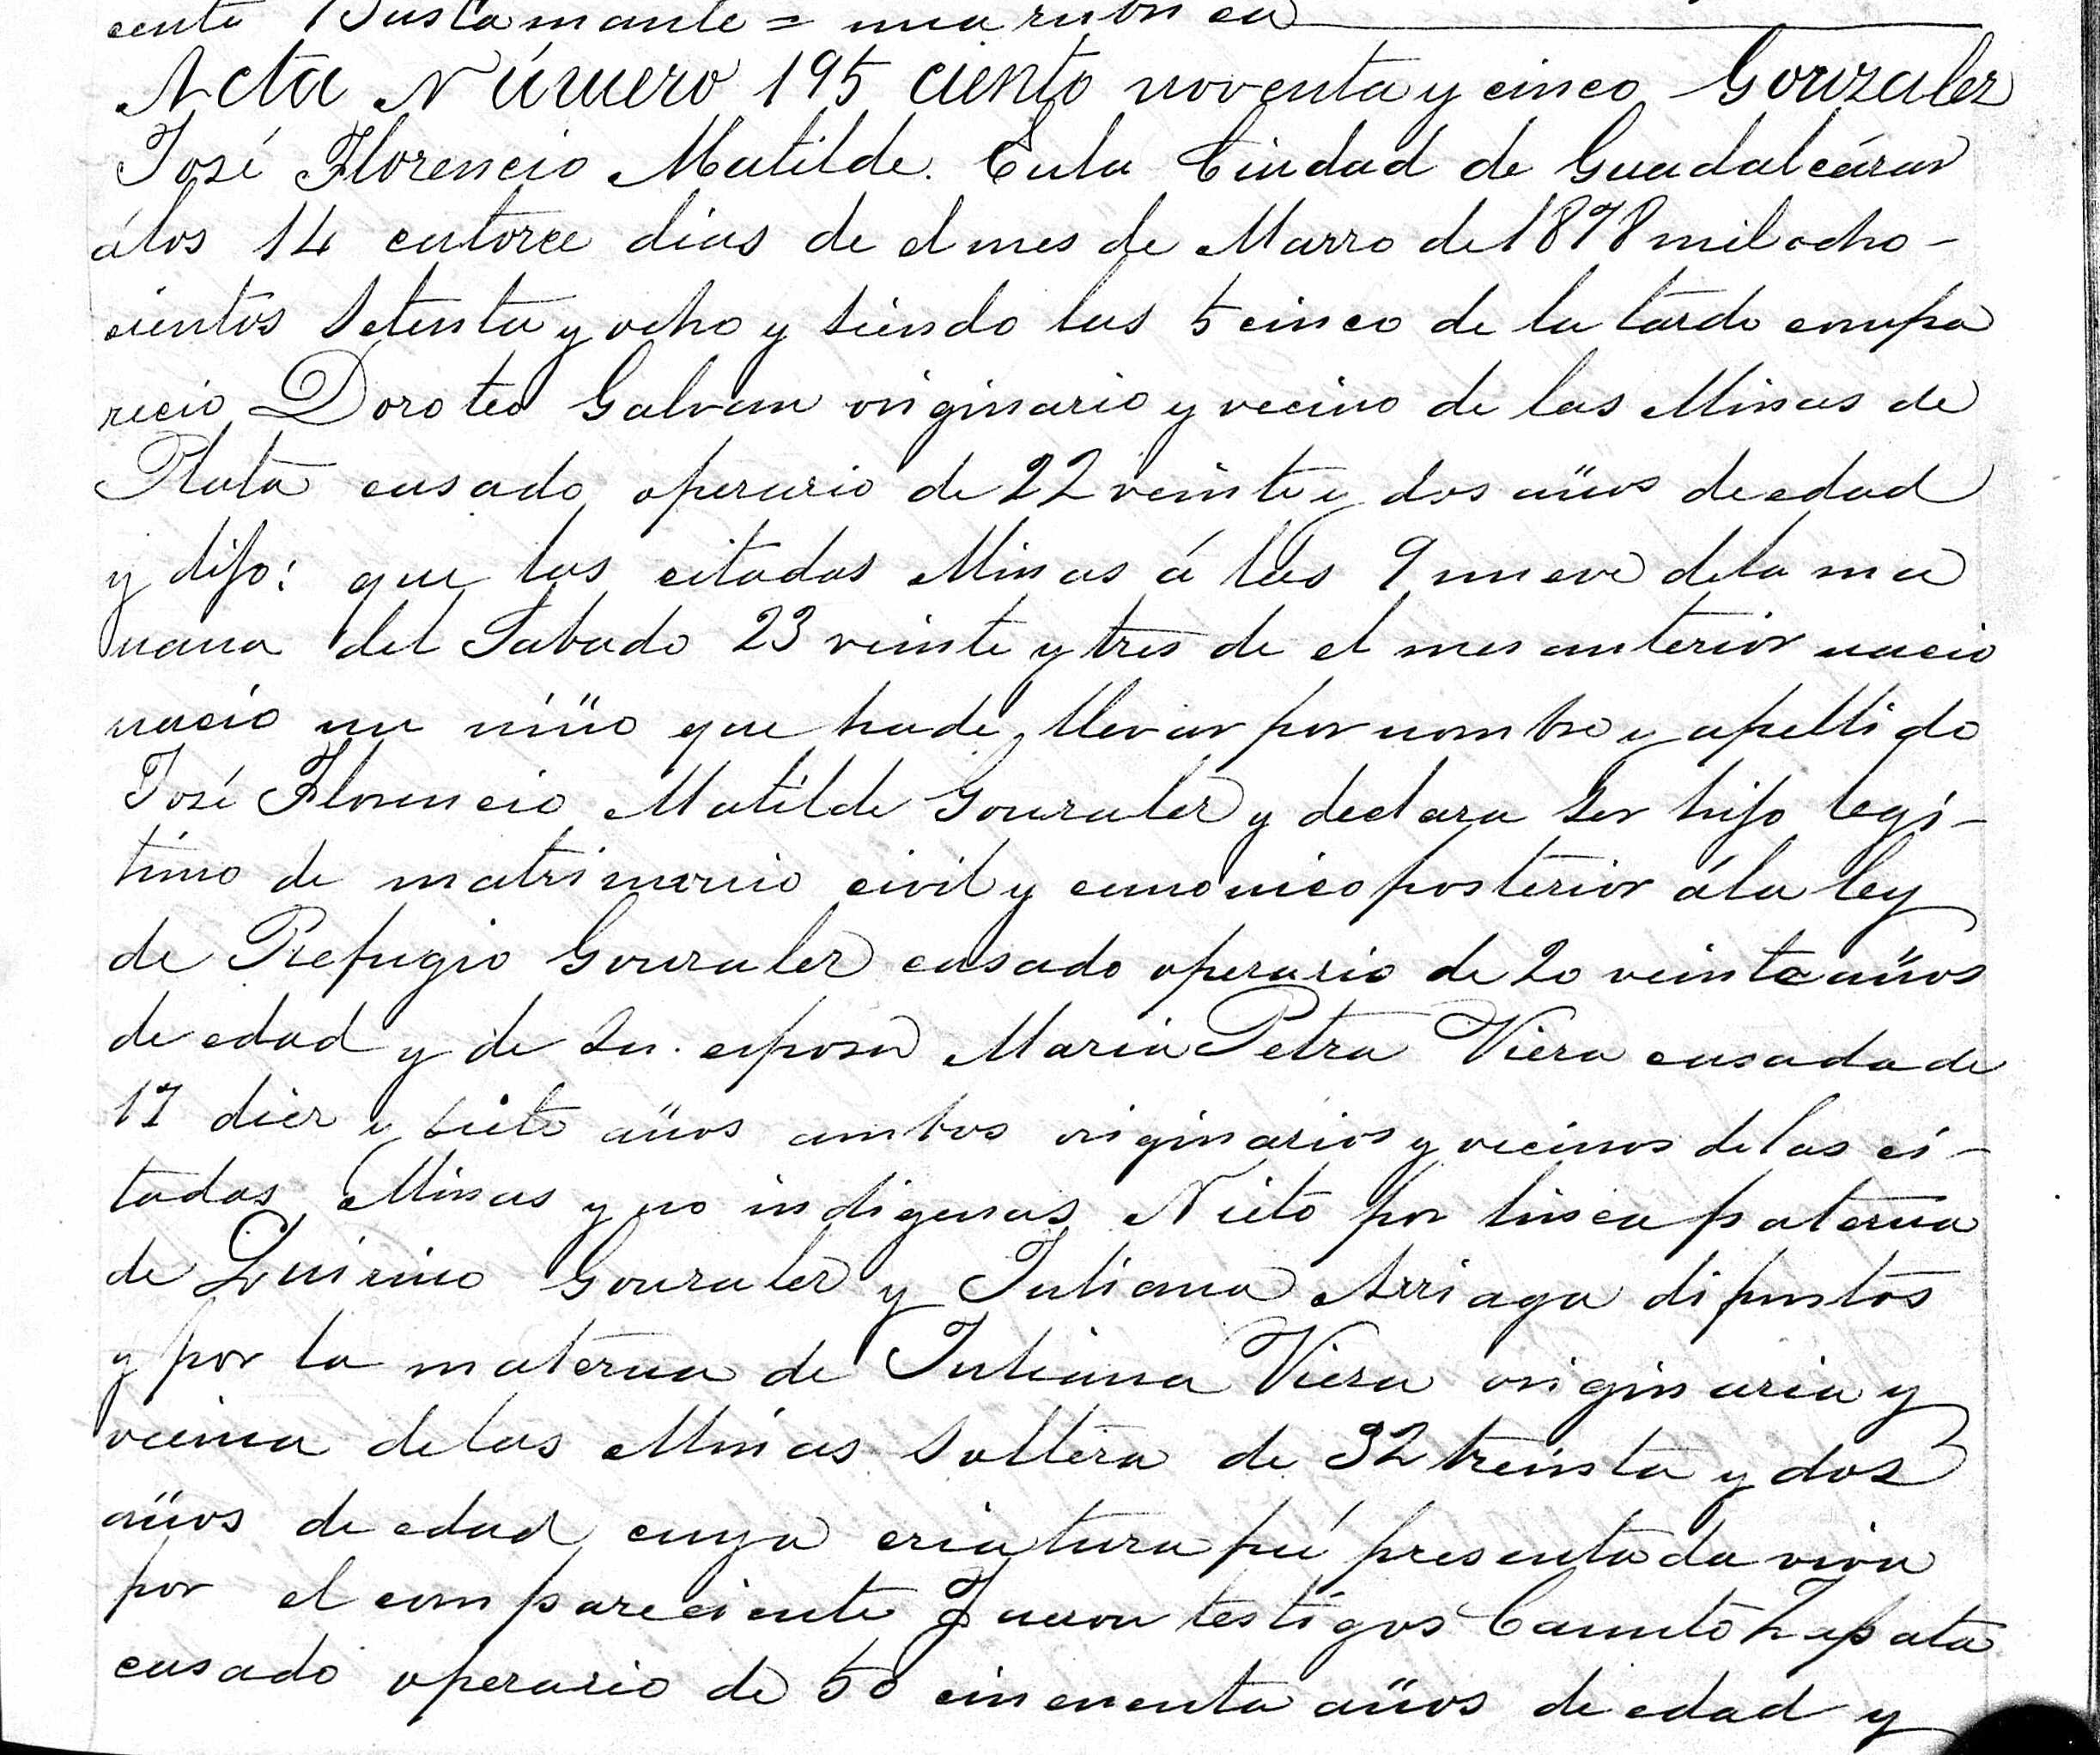 cente Bustamante = una rubrica
Acta Número 195 ciento noventa y cinco Gonzalez
José Florencio Matilde. Enla Ciudad de Guadalcázar
álos 14 catorce dias de el mes de Marzo de 1878 mil ocho-
cientos setenta y ocho y siendo las 5 cinco de la tarde compa
recio Doroteo Galvan originario y vecino de las Minas de
Plata casado operario de 22 veinte y dos años de edad
y dijo: que las citadas Minas á las 9 nueve dela ma
ñana del Sabado 23 veinte y tres de el mes anterior nacio
nació un niño que hade llevar por nombre y apellido
José Florencio Matilde Gonzalez y declara ser hijo legi-
timo de matrimonio civil y canonico posterior ála ley
de Refugio Gonzalez casado operario de 20 veinte años
de edad y de su. esposa Maria Petra Viera casada de
17 diez y siete años ambos originarios y vecinos de las ci-
tadas Minas y no indigenas Nieto por linea paterna
de Quirino Gonzalez y Juliana Arriaga difuntos
y por la materna de Juliana Viera originaria y
vecina delas Minas soltera de 32 treinta y dos
años de edad cuya criatura fué presentada viva
por el compareciente Fueron testigos Canuto Zapata
casado operario de 50 cincuenta años de edad y